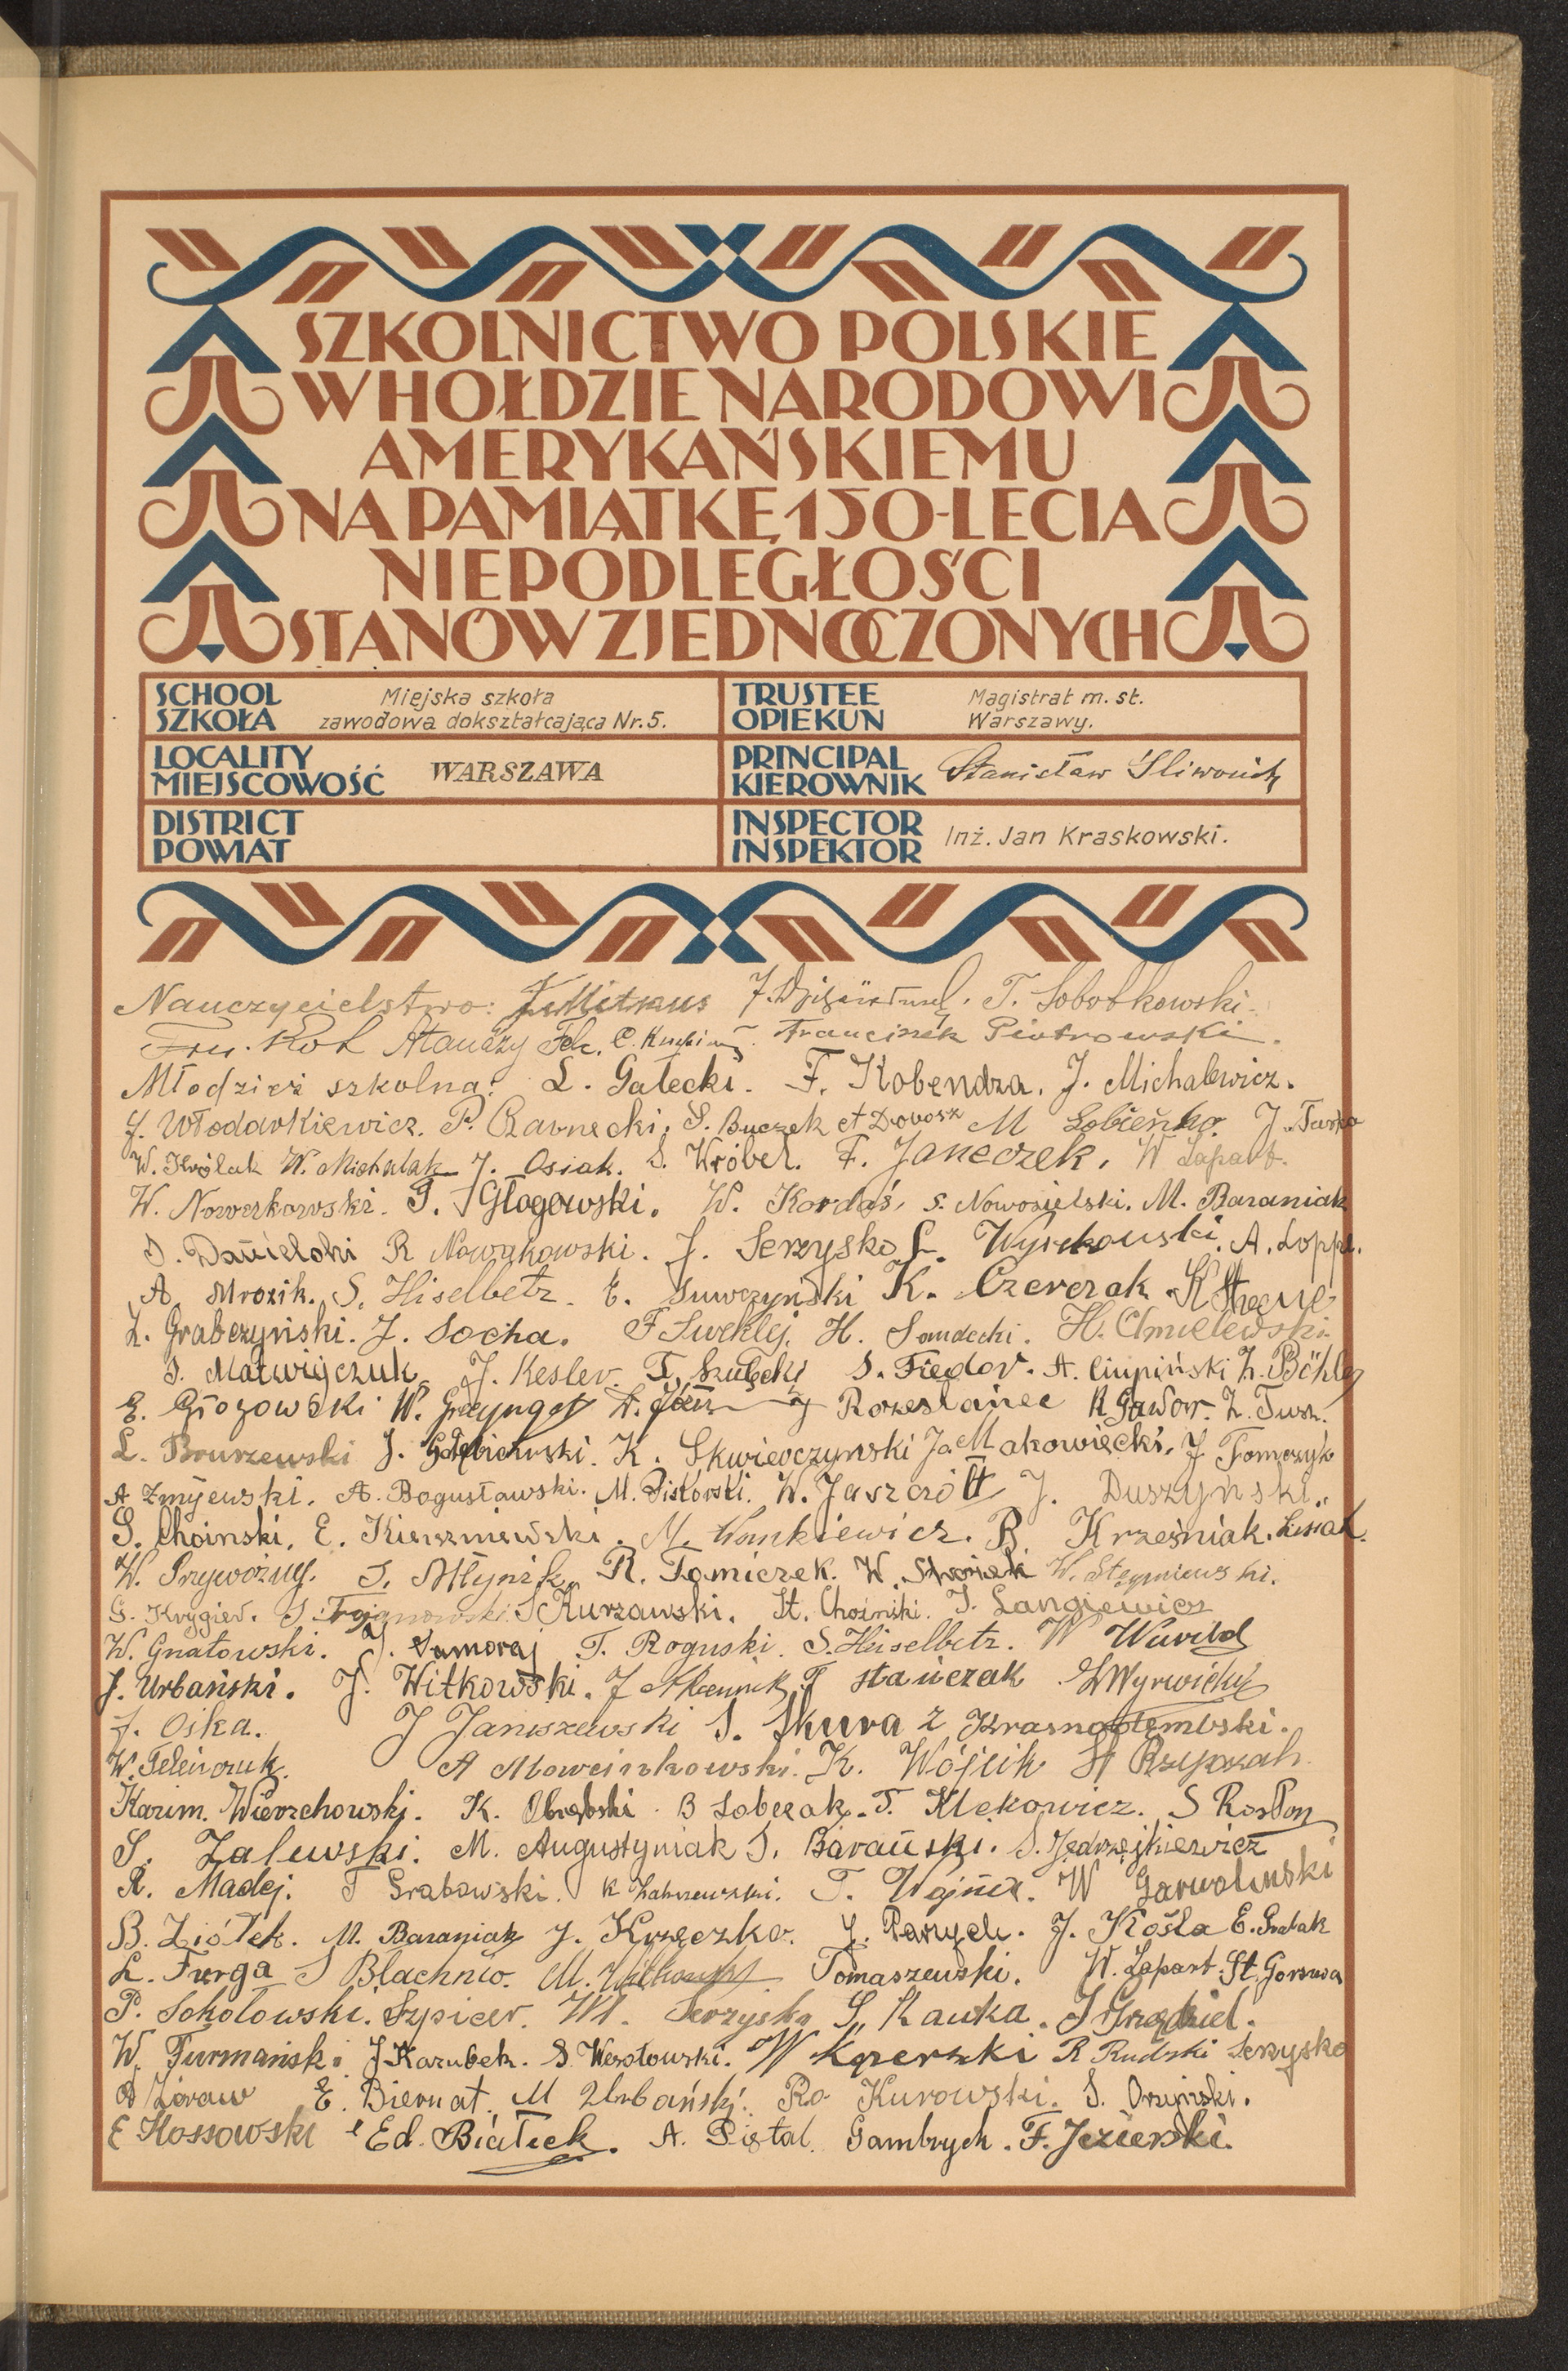 SZKOLNICTWO POLSKIE
W HOŁDZIE NARODOWI
AMERYKAŃSKIEMU
NA PAMIĄTKĘ 150-LECIA
NIEPODLEGŁOŚCI
STANÓW ZJEDNOCZONYCH
SCHOOL
SZKOŁA
Miejska szkoła
zawodowa dokształcająca Nr. 5.
TRUSTEE
OPIEKUN
Magistrat m. st.
Warszawy.
LOCALITY
MIEJSCOWOŚĆ
WARSZAWA
PRINCIPAL
KIEROWNIK
Stanisław
DISTRICT
POWIAT
INSPECTOR
INSPEKTOR
Inż. Jan Kraskowski.
Nauczycielstwo: T. Sobotkowski.
Franciszek Piotrowski.
Młodzież szkolna: L. Gałecki. F. Kobendza. J. Michalewicz.
J. Włodarkiewicz. P. Czarnecki. S. Buczek M
W. Królak W. Michalak J. Osiak. S. Wróbel. F. Janeczek. W Łapart.
W. Nowerkowski. T. Głogowski. W. Kordaś. S. Nowosielski. M. Baraniak
S. Danielski R Nowakowski. J. Serzysko A.
A. Mrozik. S. Hiselbetz. E. Suwczyński K. Czerczak
Z. Grabczyński. J. Socha. F Sweklej. H. Sandecki. H. Chmielewski
S. Matwiejczuk J. Kesler. T. S. Fiedor. A. Ciupiński
E. Głozowski W. Rozesłaniec R Gawor.
L. Bruszewski J. Gołębiowski. K. Skwierczyński Makowiecki. J Tomczyk
A Żmijewski. A. Bogusławski. M. Piskorski. W. Jaszczółt J. Duszyński.
S. Choinski. E. M. Wankiewicz. B Krześniak. Lesiak.
W. S. Młynik R. Tomiczek. W.
G. Krygier. S. Trojanowski. S Kurzawski. St. Choinski. J. Langiewicz
W. Gnatowski. J. Jamoraj T. Roguski. S. Hiselbetz. W
J. Urbański. J. Witkowski. J F Stańczak
J. Oska. J Janiszewski S. Skura Z Krasnodembski.
W. A Marcinkowski. K. Wójcik
Kazim. Wierzchowski. K. Obrębski. B Sobczak. T. Klekowicz. S
S. Zalewski. M. Augustyniak S. Barański. S. Jędrzejkiewicz
R. Madej. T Grabowski. K T. Wojner. W Garwolinski
B. Ziółek. M. Baraniak J. Krzęczko. J. Parzych. J. Kośla E.
L. Furga S Blachnio. M. Witkowski Tomaszewski. W. Łapart. St.
P. Sokołowski. Szpicer. Wł. Serzysko S. Kauka. J Grądziel.
W. Furmański J Karubek. S. Wesołowski. W R Rudski Serzysko
Żóraw E. Biernat. M Urbański. Ro Kurowski. S.
E Kossowski Ed. Białek. A. Piętal. Gambrych. F. Jezierski.